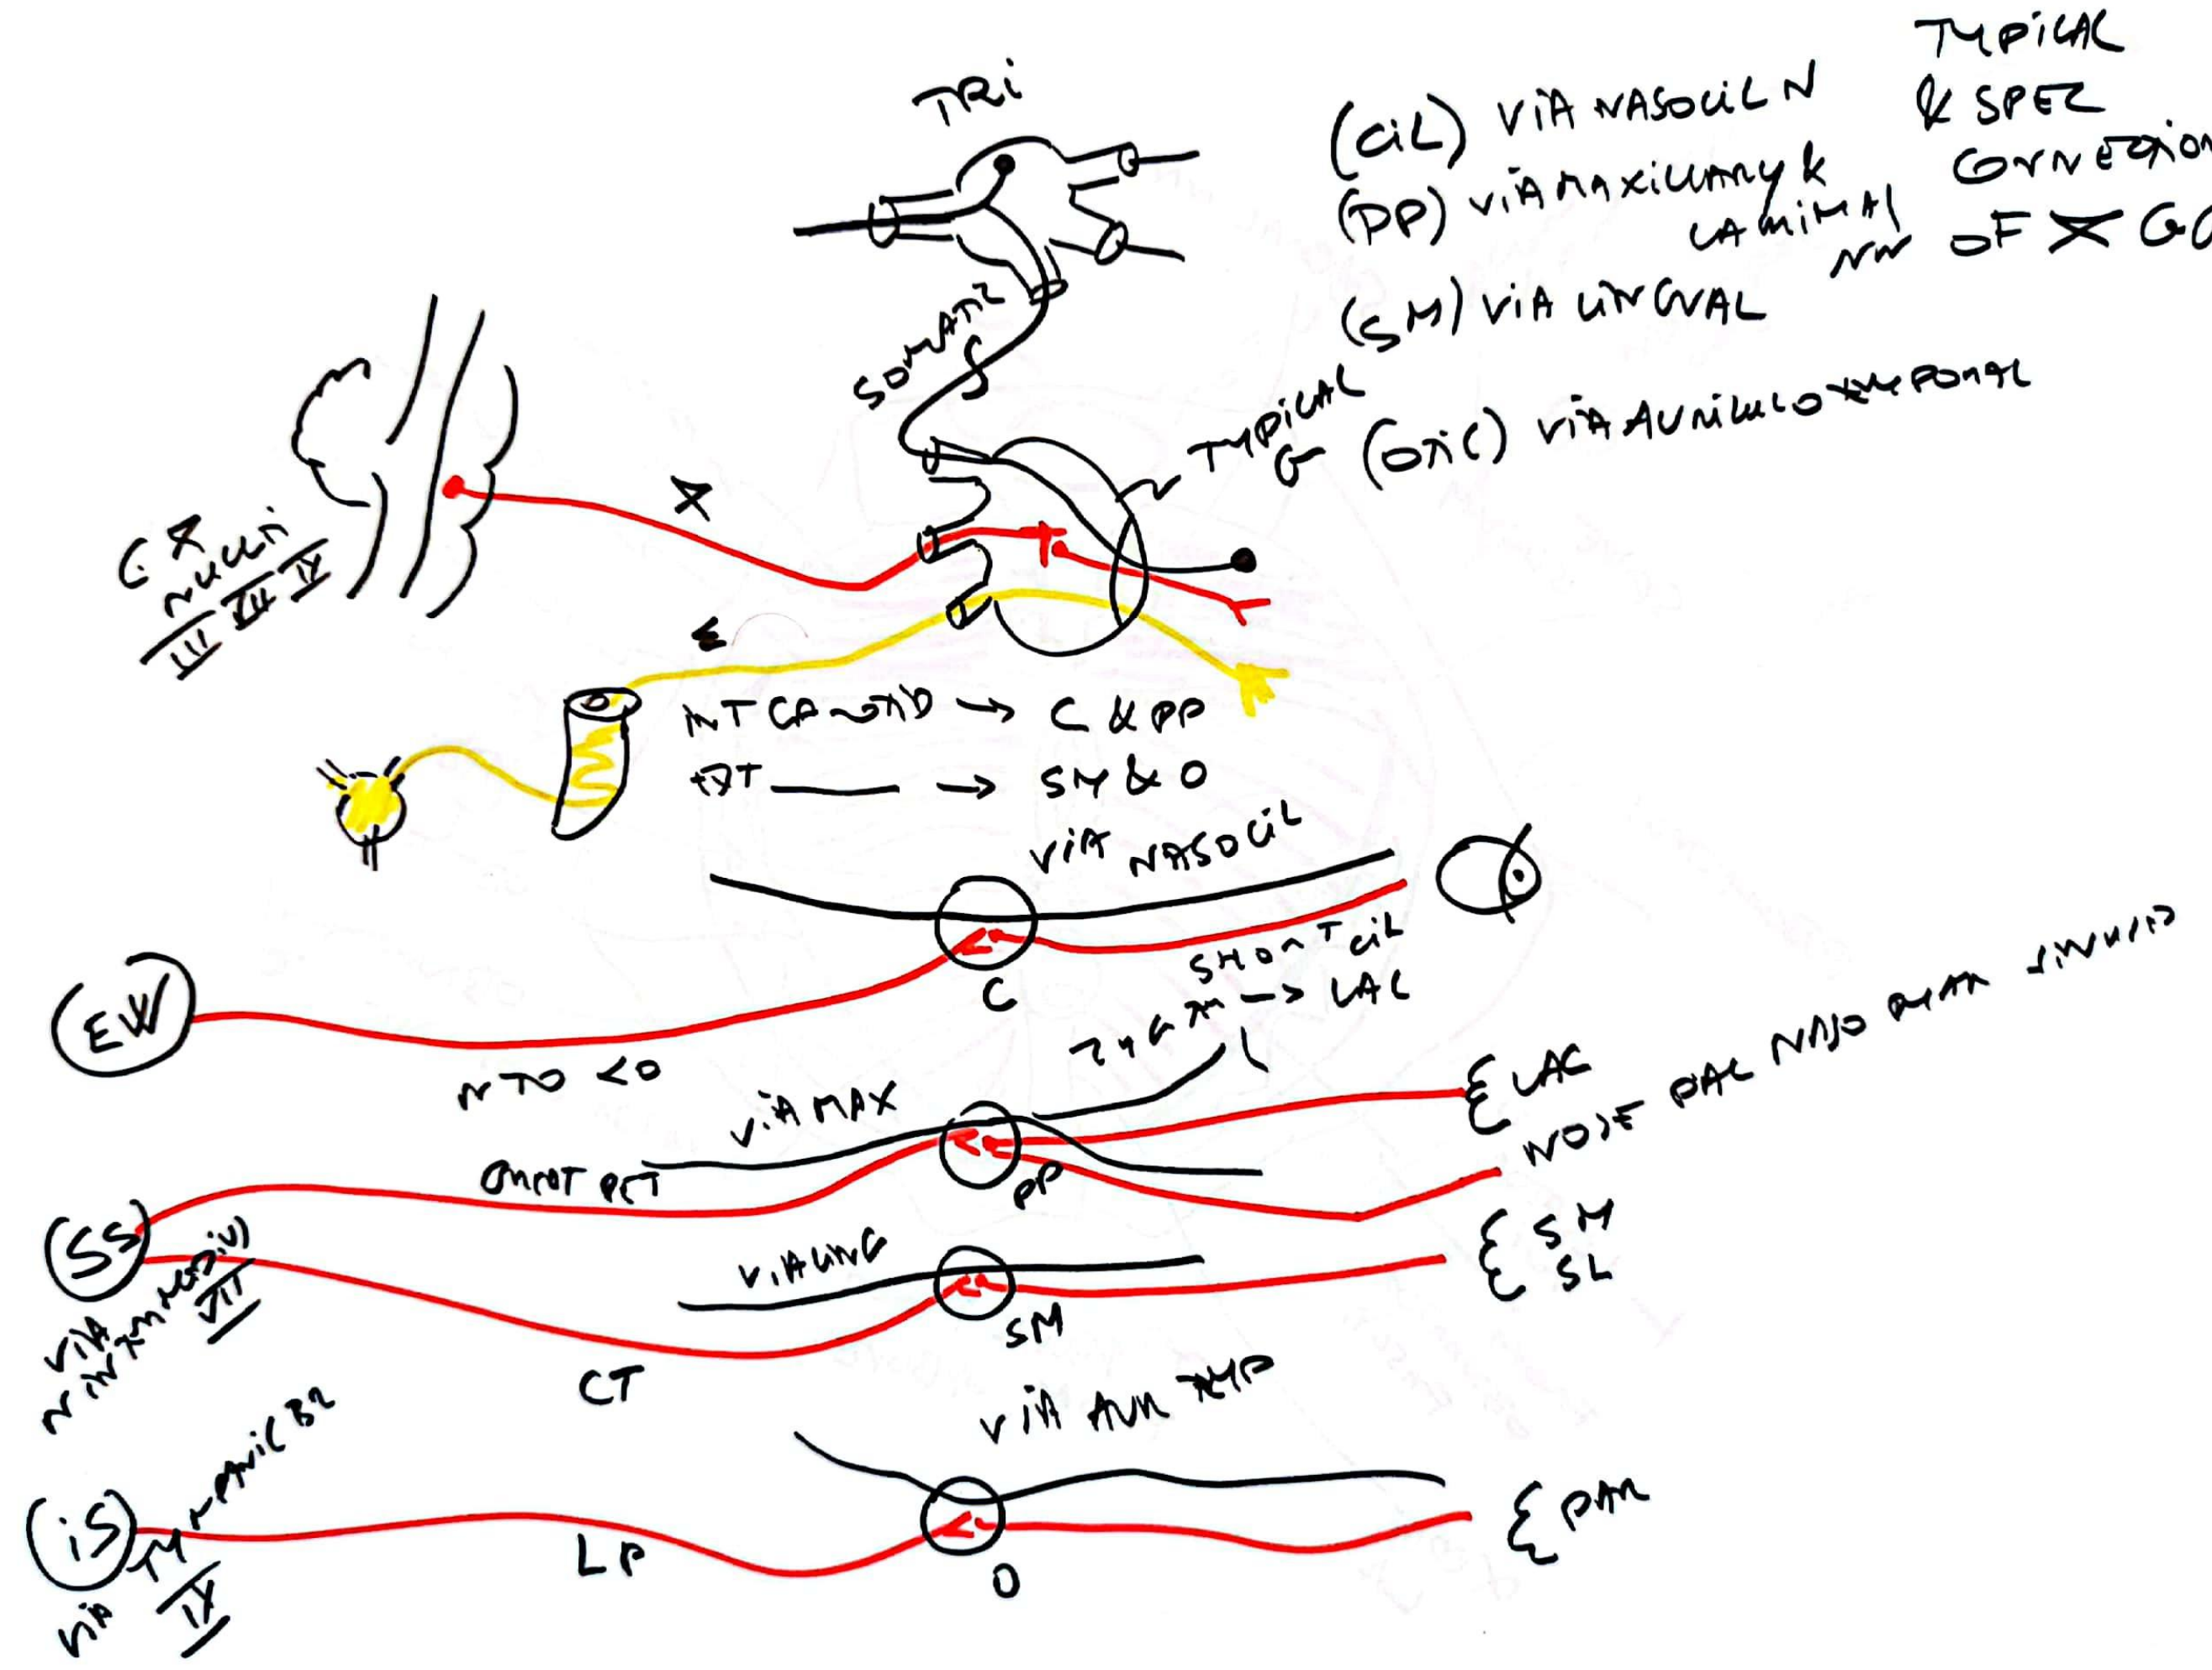 TYPICAL
& SPEC
CONNECTION
OF X GG
TRI
(CIL) VIA NASOCIL N
(PP) VIA MAXILLARY &
LACRIMAL
NN
(SM) VIA LINGUAL
(OTIC) VIA AURICULOTEMPORAL
SOMATIC
TYPICAL
G
X
C. X
NUCLEI
III VII IX
Σ
INT CAROTID → C & PP
EXT ——— → SM & O
VIA NASOCIL
EW
C
SHORT CIL
N TO <O
ZYG TM → LAC
VIA MAX
LAC
NOSE PAL NASO PHAR SINUSES
GREAT PET
PP
SS
VIA
N INTERMEDIUS
VII
VIA LING
SM
SL
SM
CT
VIA AUR TEMP
IS
VIA TYMPANIC BR
IX
LP
O
PAR